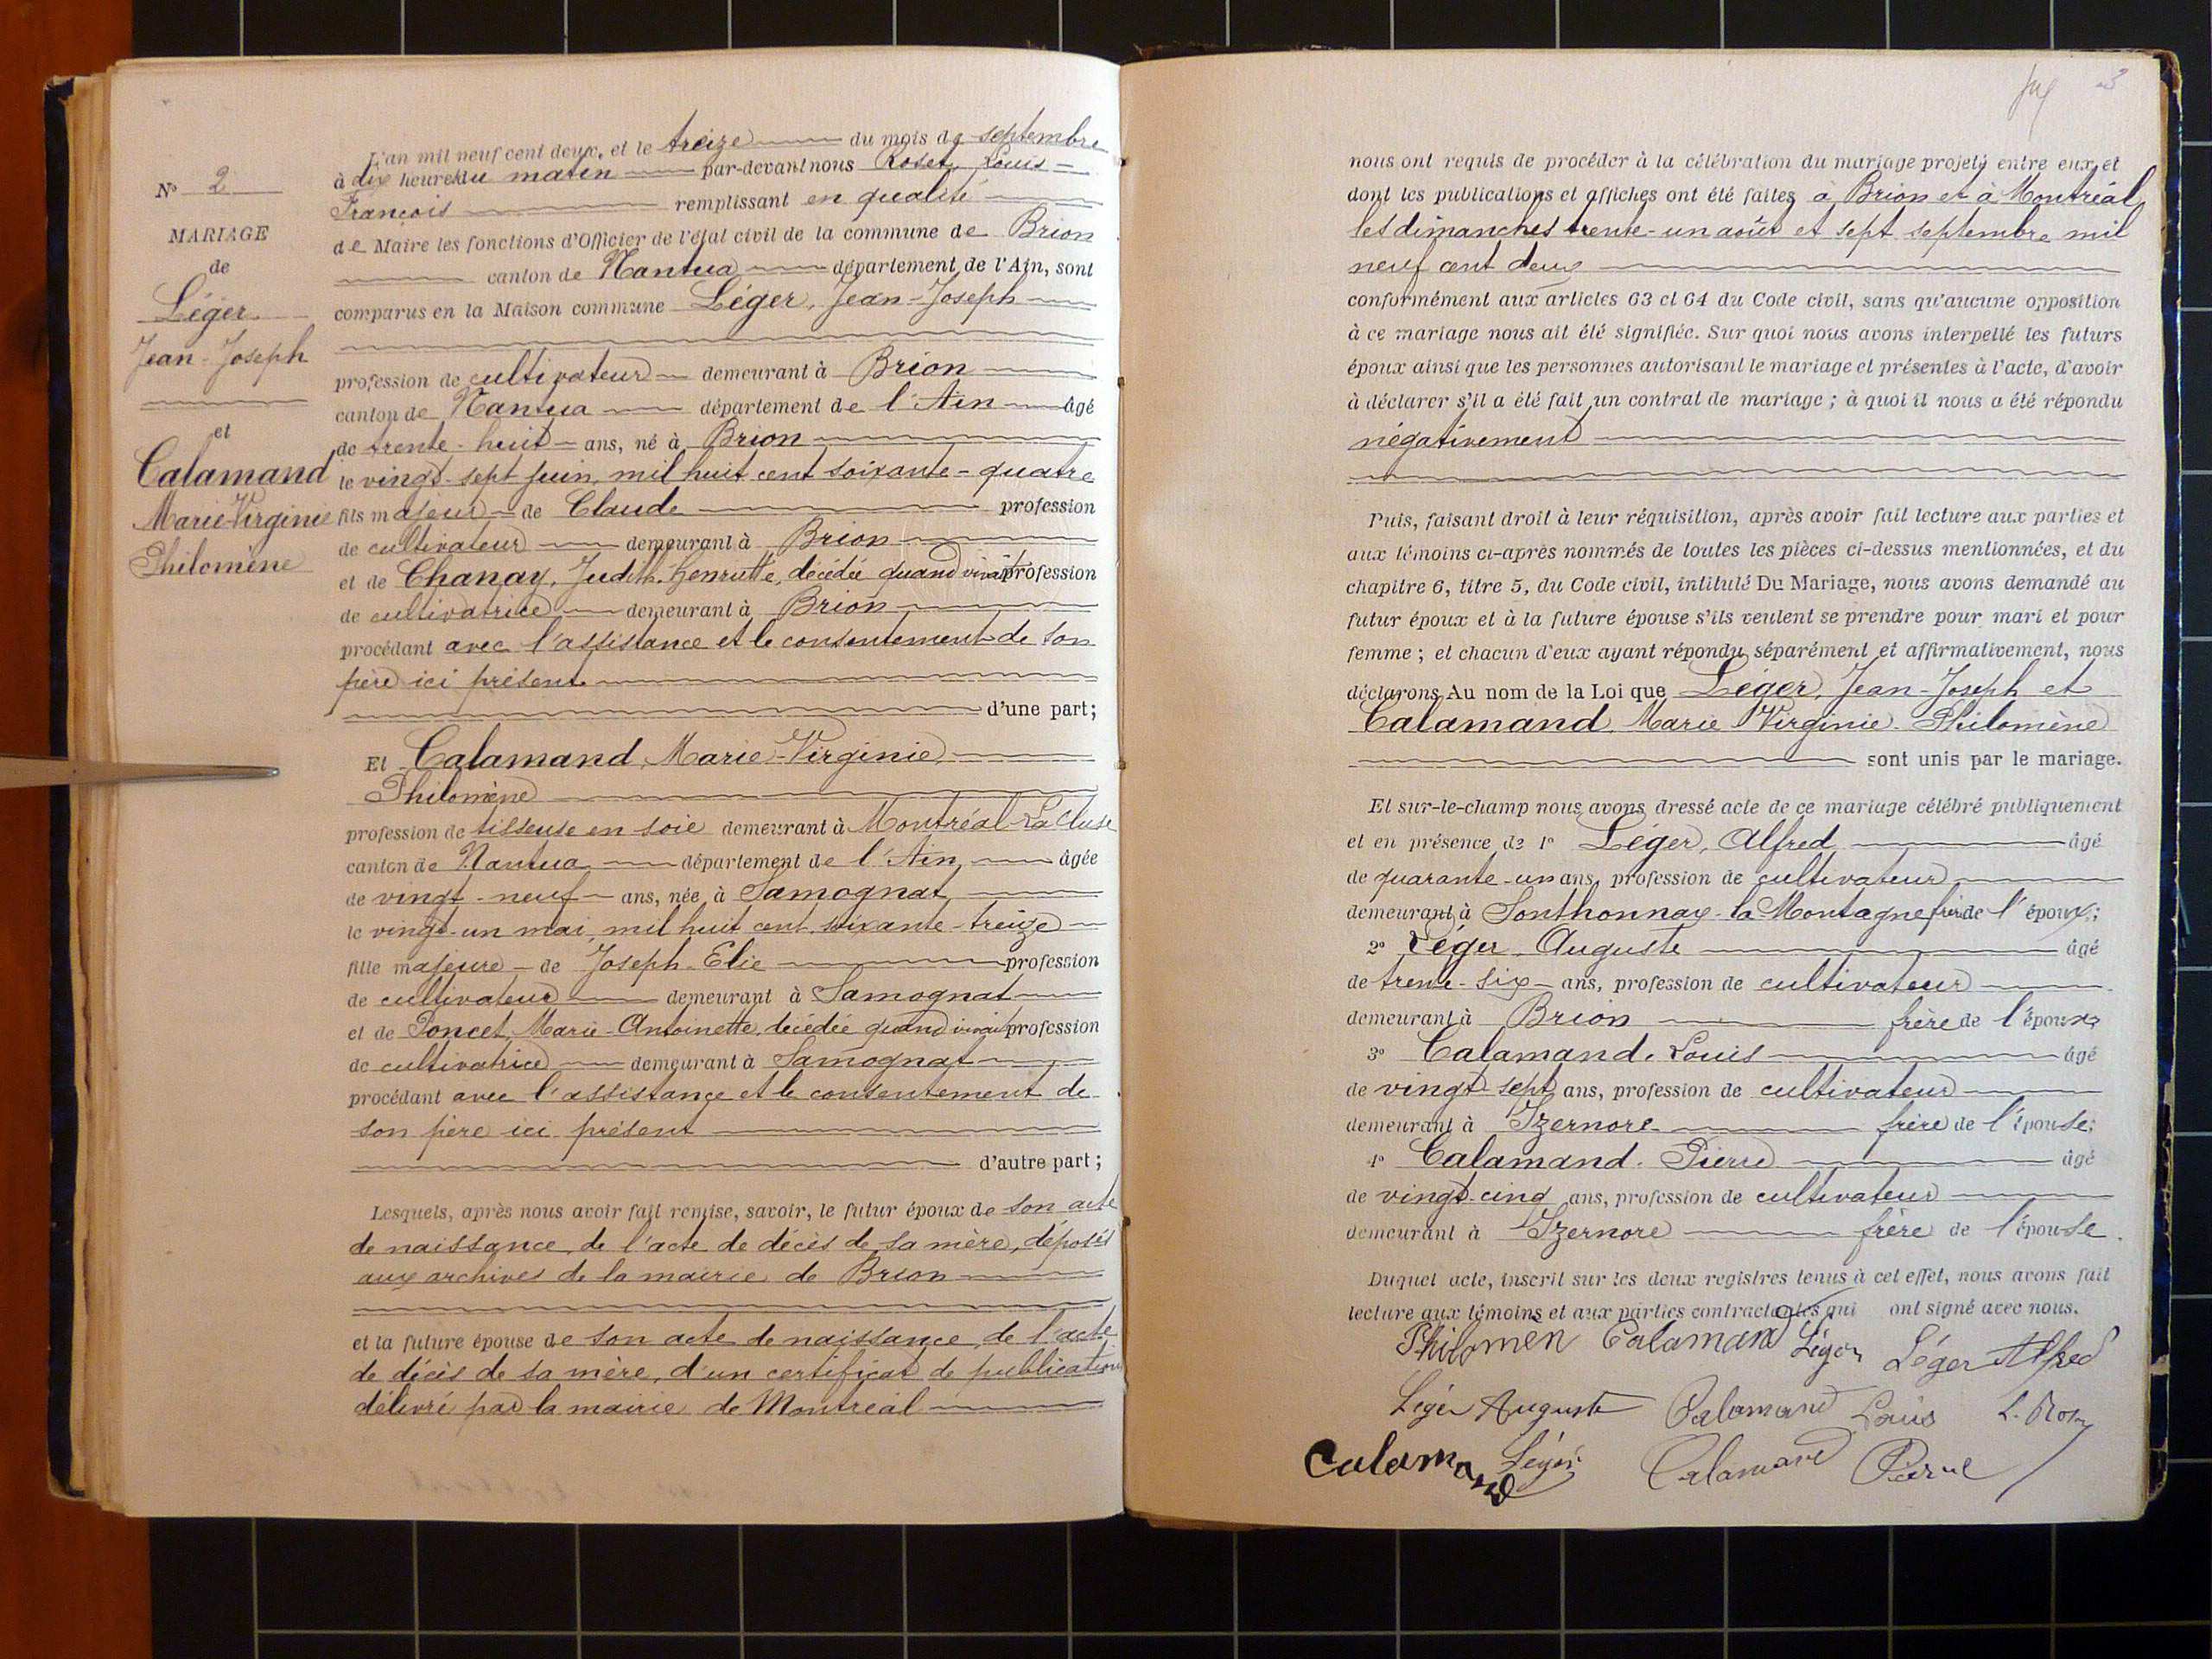 N° 2
MARIAGE
de
Léger
Jean-Joseph
et
Calamand
Marie-Virginie
Philomène
L'an mil neuf cent deux, et le treize du mois de septembre
à dix heures du matin par-devant nous Roset, Louis-
François remplissant en qualité
de Maire les fonctions d'Officier de l'état civil de la commune de Brion
canton de Nantua département de l'Ain, sont
comparus en la Maison commune Léger, Jean-Joseph
profession de cultivateur demeurant à Brion
canton de Nantua département de l'Ain âgé
de trente-huit ans, né à Brion
le vingt-sept juin, mil huit cent soixante-quatre
fils majeur de Claude profession
de cultivateur demeurant à Brion
et de Chanay, Judith, Henriette, décédée quand vivait profession
de cultivatrice demeurant à Brion
procédant avec l'assistance et le consentement de son
père ici présent
d'une part;
Et Calamand, Marie-Virginie
Philomène
profession de tisseuse en soie demeurant à Montréal-La Cluse
canton de Nantua département de l'Ain, âgée
de vingt-neuf ans, née à Samognat
le vingt-un mai, mil huit cent soixante-treize
fille majeure de Joseph-Elie profession
de cultivateur demeurant à Samognat
et de Poncet, Marie-Antoinette, décédée quand vivait profession
de cultivatrice demeurant à Samognat
procédant avec l'assistance et le consentement de
son père ici présent
d'autre part;
Lesquels, après nous avoir fait remise, savoir, le futur époux de son acte
de naissance, de l'acte de décès de sa mère, déposés
aux archives de la mairie de Brion
et la future épouse de son acte de naissance, de l'acte
de décès de sa mère, d'un certificat de publication
délivré par la mairie de Montréal
3
nous ont requis de procéder à la célébration du mariage projeté entre eux, et
dont les publications et affiches ont été faites à Brion et à Montréal
les dimanches trente-un août et sept septembre mil
neuf cent deux
conformément aux articles 63 et 64 du Code civil, sans qu'aucune opposition
à ce mariage nous ait été signifiée. Sur quoi nous avons interpellé les futurs
époux ainsi que les personnes autorisant le mariage et présentes à l'acte, d'avoir
à déclarer s'il a été fait un contrat de mariage; à quoi il nous a été répondu
négativement
Puis, faisant droit à leur réquisition, après avoir fait lecture aux parties et
aux témoins ci-après nommés de toutes les pièces ci-dessus mentionnées, et du
chapitre 6, titre 5, du Code civil, intitulé Du Mariage, nous avons demandé au
futur époux et à la future épouse s'ils veulent se prendre pour mari et pour
femme; et chacun d'eux ayant répondu séparément et affirmativement, nous
déclarons Au nom de la Loi que Léger, Jean-Joseph et
Calamand, Marie Virginie-Philomène
sont unis par le mariage.
Et sur-le-champ nous avons dressé acte de ce mariage célébré publiquement
et en présence de 1° Léger, Alfred âgé
de quarante-un ans, profession de cultivateur
demeurant à Sonthonnax-la-Montagne frère de l'époux;
2° Léger Auguste âgé
de trente-six ans, profession de cultivateur
demeurant à Brion frère de l'époux
3° Calamand, Louis âgé
de vingt-sept ans, profession de cultivateur
demeurant à Izernore frère de l'épouse;
4° Calamand, Pierre âgé
de vingt-cinq ans, profession de cultivateur
demeurant à Izernore frère de l'épouse.
Duquel acte, inscrit sur les deux registres tenus à cet effet, nous avons fait
lecture aux témoins et aux parties contractantes qui ont signé avec nous.
Philomèn Calamand Léger Léger Alfred
Léger Auguste Calamand Louis L. Roset
Calamand Léger Calamand Pierre